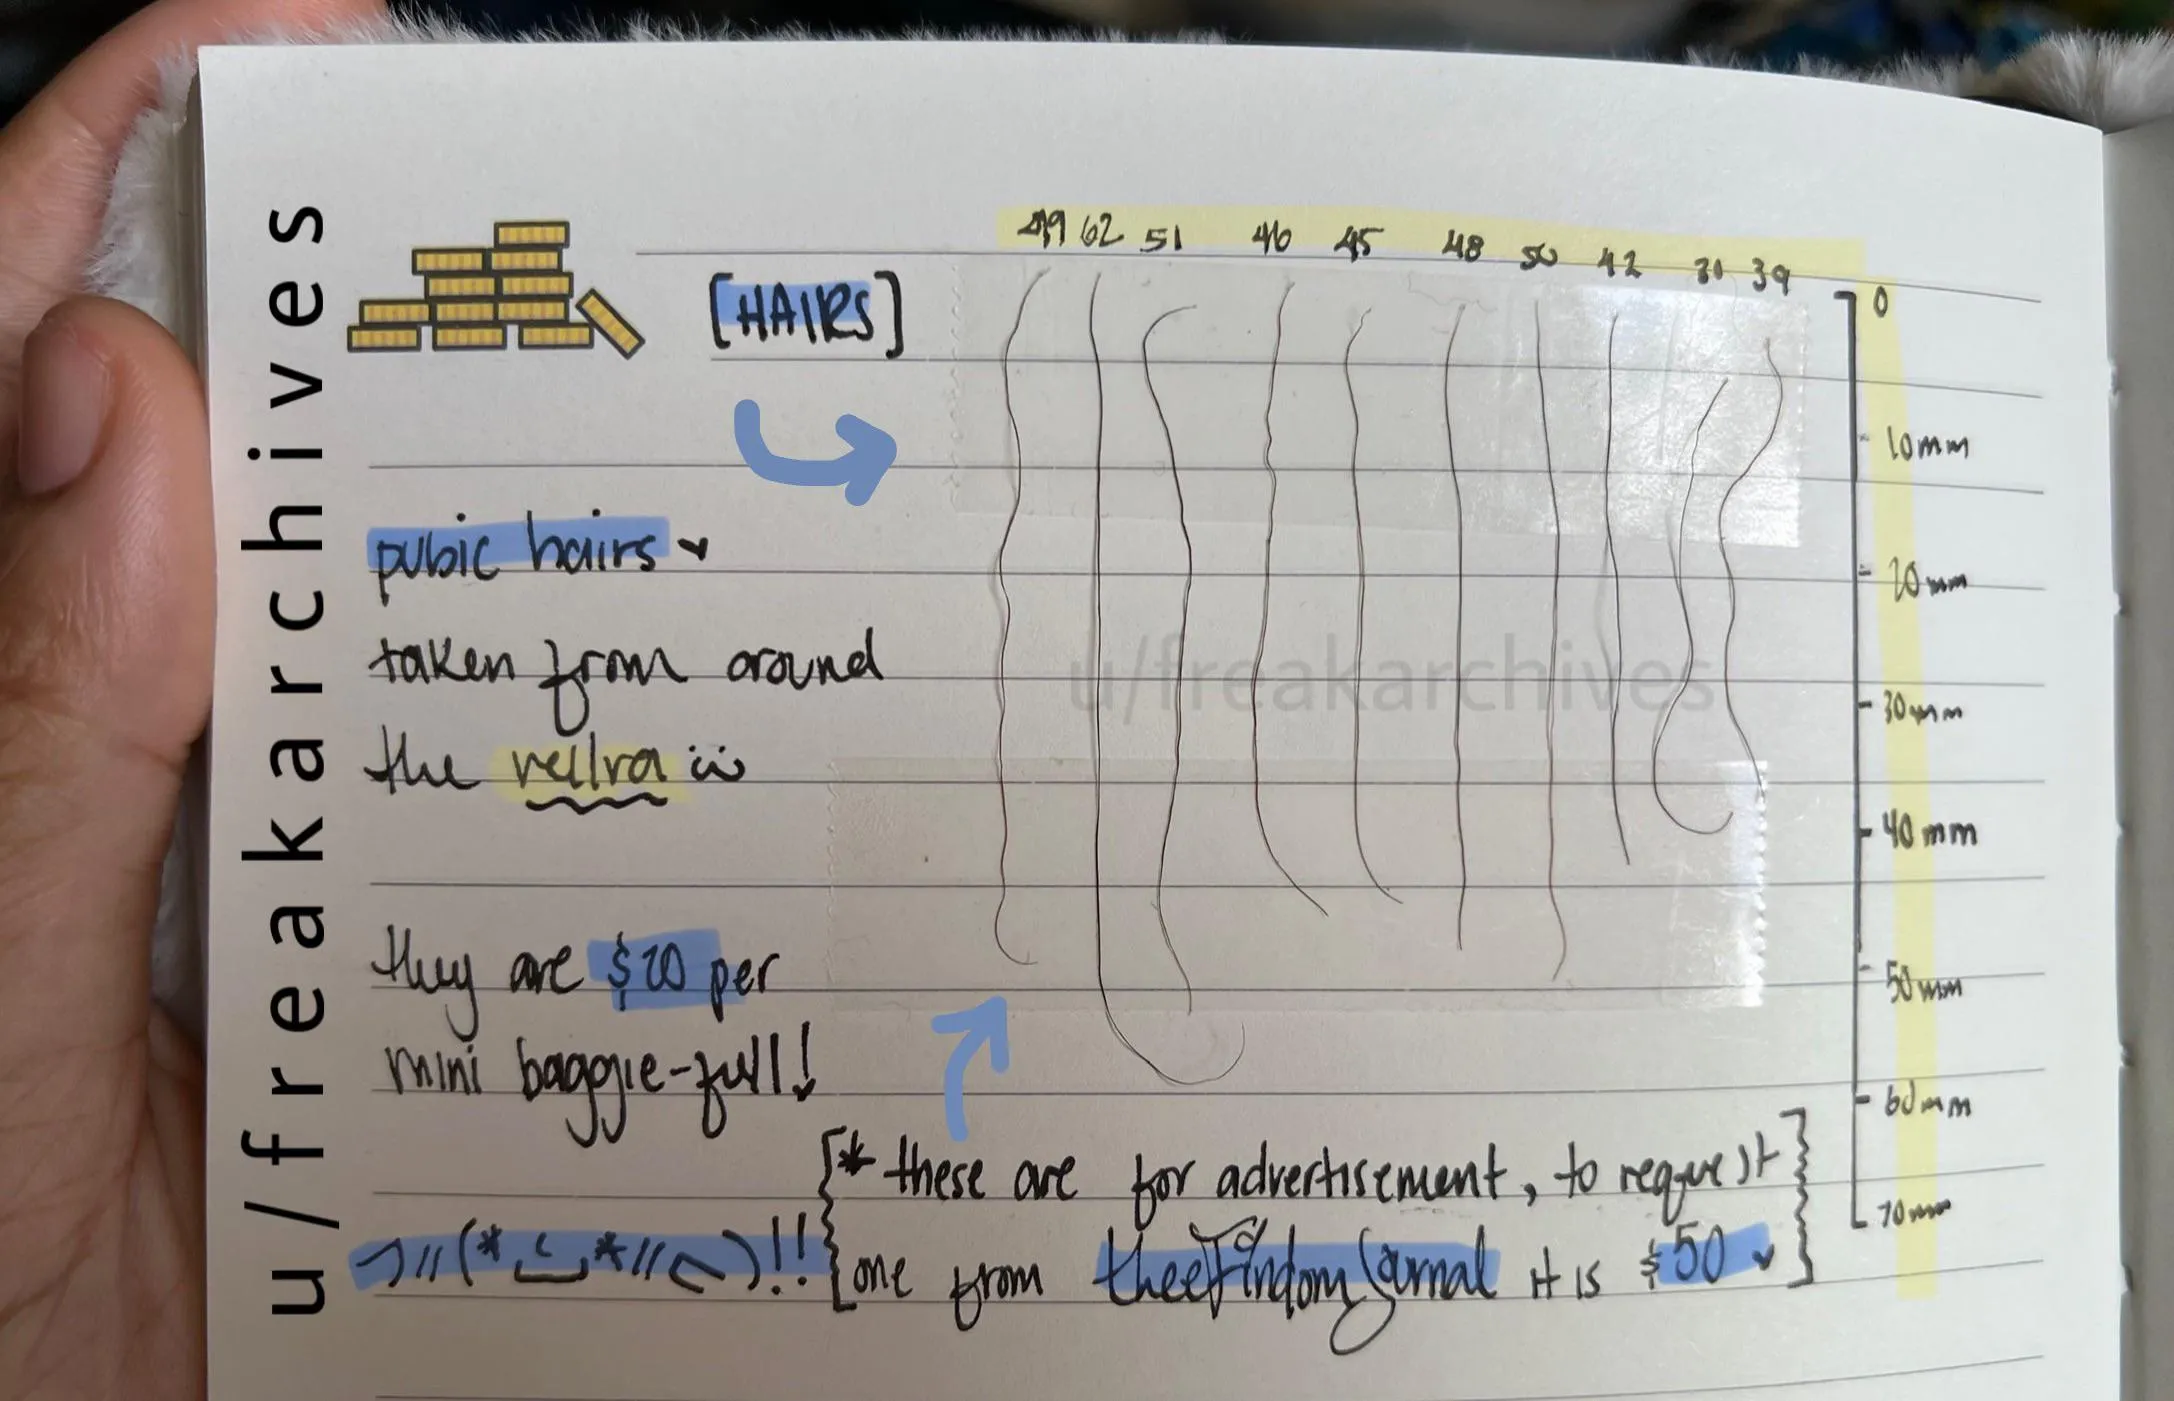 u/freakarchives
49 62 51 46 45 48 50 42 30 39
[HAIRS]
0
10mm
pubic hairs
20mm
taken from around
u/freakarchives
30mm
the
40mm
they are $20 per
50mm
mini baggie-full!
60mm
[* these are for advertisement, to request
70mm
one from theeFindomJournal it is $50